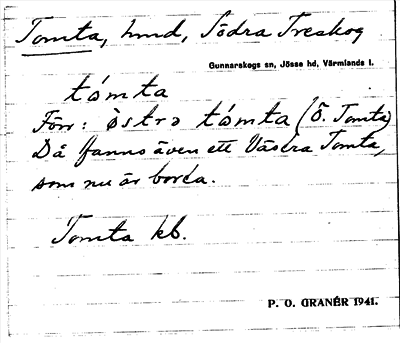 Tomta, hmd, Södra Treskog
Gunnarskogs sn, Jösse hd, Värmlands l.
tómta
Förr: òstrə tómta (Ö. Tomta)
Då fanns även ett Västra Tomta,
som nu är borta.
Tomta kb.
P. O. GRANÉR 1941.